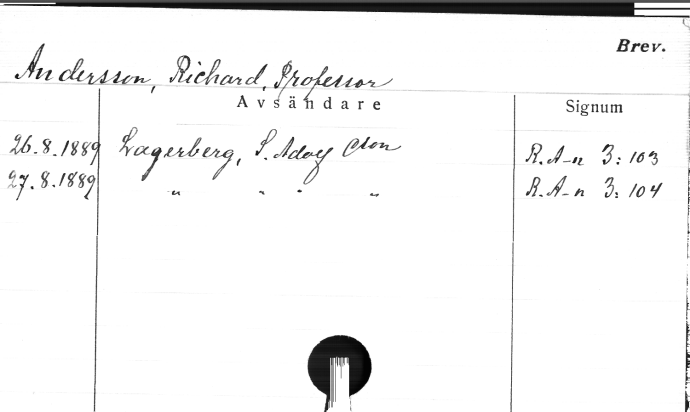 Brev.
Andersson, Richard, Professor
Avsändare Signum
26.8.1889 Lagerberg, S. Adolf Cson R.A-n 3:103
27.8.1889 " " " " R.A-n 3:104